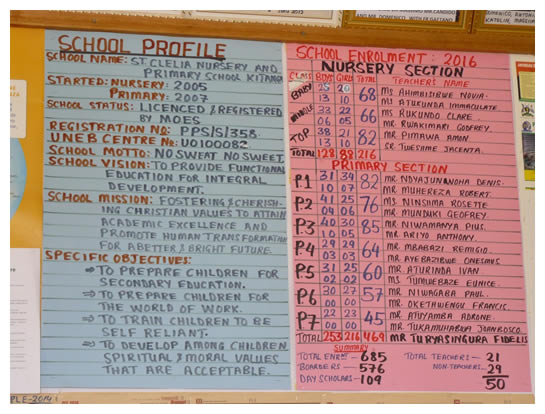 SCHOOL PROFILE
SCHOOL NAME: ST. CLELIA NURSERY AND
PRIMARY SCHOOL KITANGA
STARTED: NURSERY: 2005
PRIMARY: 2007
SCHOOL STATUS: LICENCED & REGISTERED
BY MOES
REGISTRATION No: PPS/S/358
UNEB CENTRE No: U0100082
SCHOOL MOTTO: NO SWEAT NO SWEET
SCHOOL VISION: TO PROVIDE FUNCTIONAL
EDUCATION FOR INTEGRAL
DEVELOPMENT.
SCHOOL MISSION: FOSTERING & CHERISH-
ING CHRISTIAN VALUES TO ATTAIN
ACADEMIC EXCELLENCE AND
PROMOTE HUMAN TRANSFORMATION
FOR A BETTER & BRIGHT FUTURE.
SPECIFIC OBJECTIVES:
⇒ TO PREPARE CHILDREN FOR
SECONDARY EDUCATION.
⇒ TO PREPARE CHILDREN FOR
THE WORLD OF WORK.
⇒ TO TRAIN CHILDREN TO BE
SELF RELIANT.
⇒ TO DEVELOP AMONG CHILDREN
SPIRITUAL & MORAL VALUES
THAT ARE ACCEPTABLE.
SCHOOL ENROLMENT: 2016
NURSERY SECTION
CLASS BOYS GIRLS TOTAL TEACHERS NAME
BABY 25 20 68 MS AHIMBISIBWE NOVIA.
13 10 MS ATUKUNDA IMMACULATE.
MIDDLE 33 22 66 MS RUKUNDO CLARE.
06 05 MR RWAKIMARI GODFREY.
TOP 38 21 82 MR PIMAWA AMON
13 10 SR TUESIME JACENTA.
TOTAL 128 88 216
PRIMARY SECTION
P1 31 34 82 MR NDYAJUNWOHA DENIS.
10 07 MR MUHEREZA ROBERT.
P2 41 25 76 MS NINSIIMA ROSETTE
04 06 MR MUNDUKI GEOFREY.
P3 40 30 85 MR NIWAMANYA PIUS.
10 05 MR ARIYO ANTHONY.
P4 29 29 64 MR MBABAZI REMIGIO.
03 03 MR AYEBAZIBWE ONESMUS.
P5 31 25 60 MR ATURINDA IVAN
02 02 MS TUMWEBAZE EUNICE.
P6 30 27 57 MR NIWAGABA PAUL.
00 00 MR OKETHWENGU FRANCIS.
P7 22 23 45 MR ATUYAMBA ADRONE.
00 00 MR TUKAMUHABWA JOHNBOSCO.
TOTAL 253 216 469 MR TURYASINGURA FIDELIS
SUMMARY
TOTAL ENRMT - 685 TOTAL TEACHERS - 21
BOARDERS - 576 NON-TEACHERS - 29
DAY SCHOLARS - 109 50
PLE-2014